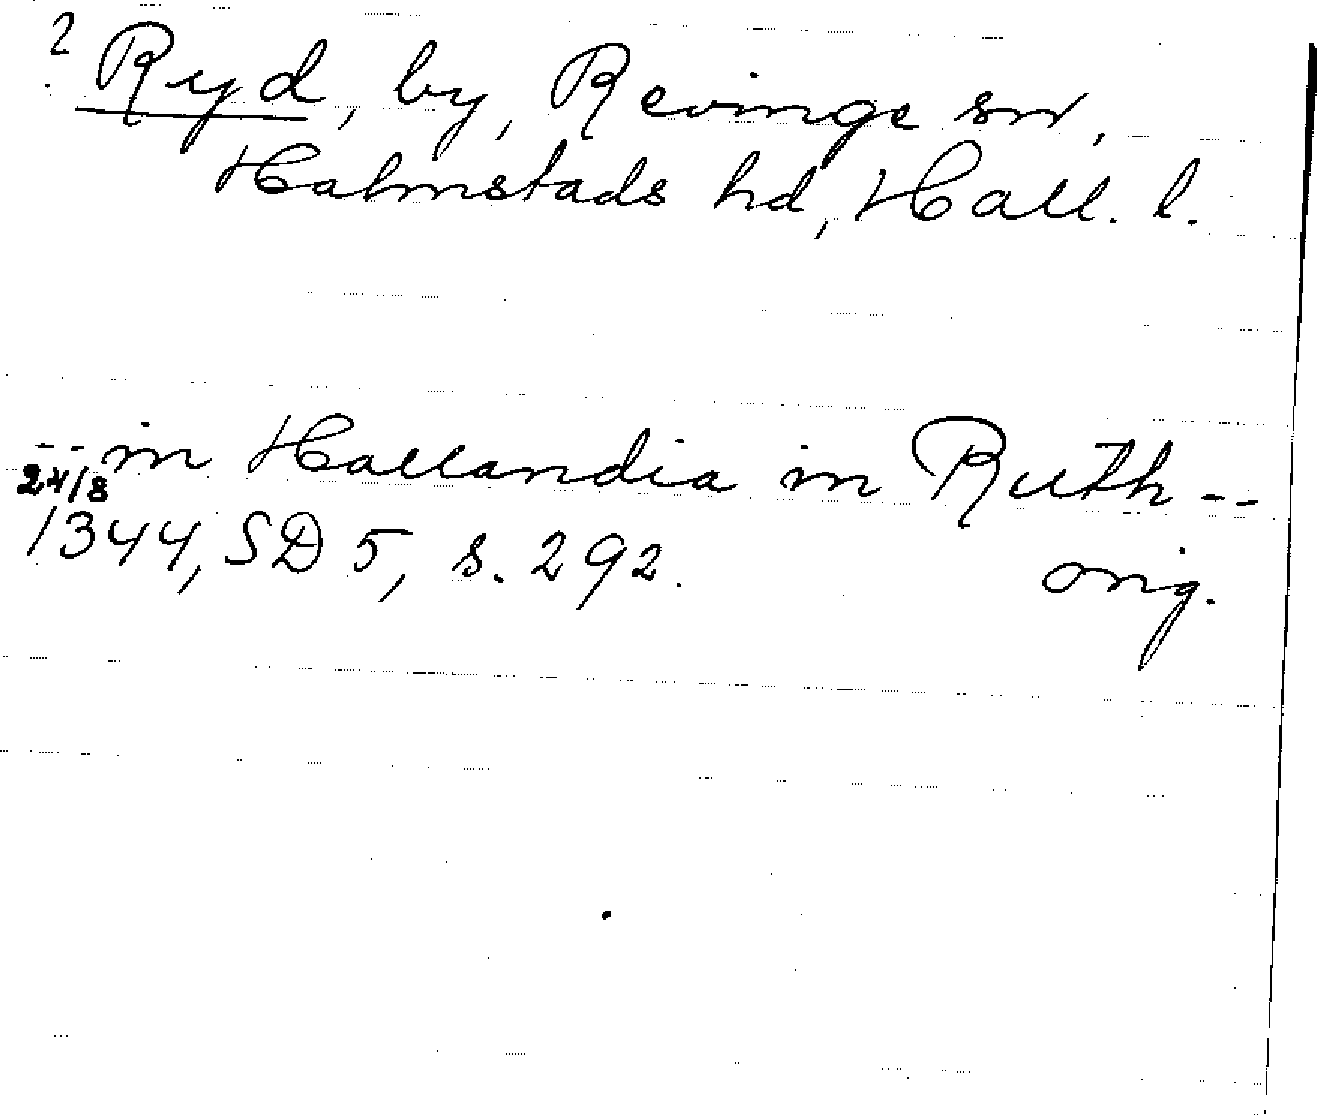 ? Ryd, by, Revinge sn,
Halmstads hd, Hall. l.
-- in Hallandia in Ruth --
24/8
1344, SD 5, s. 292. orig.